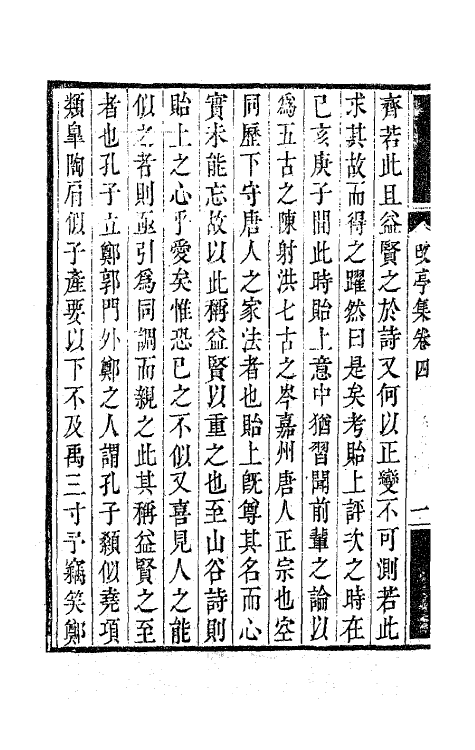 改亭集卷四
二
齊若此且益賢之於詩又何以正變不可測若此
求其故而得之躍然曰是矣考貽上評次之時在
己亥庚子間此時貽上意中猶習聞前輩之論以
爲五古之陳射洪七古之岑嘉州唐人正宗也空
同歷下守唐人之家法者也貽上旣尊其名而心
實未能忘故以此稱益賢以重之也至山谷詩則
貽上之心乎愛矣惟恐已之不似又喜見人之能
似之者則亟引爲同調而親之此其稱益賢之至
者也孔子立鄭郭門外鄭之人謂孔子顙似堯項
類臯陶肩似子產要以下不及禹三寸予竊笑鄭